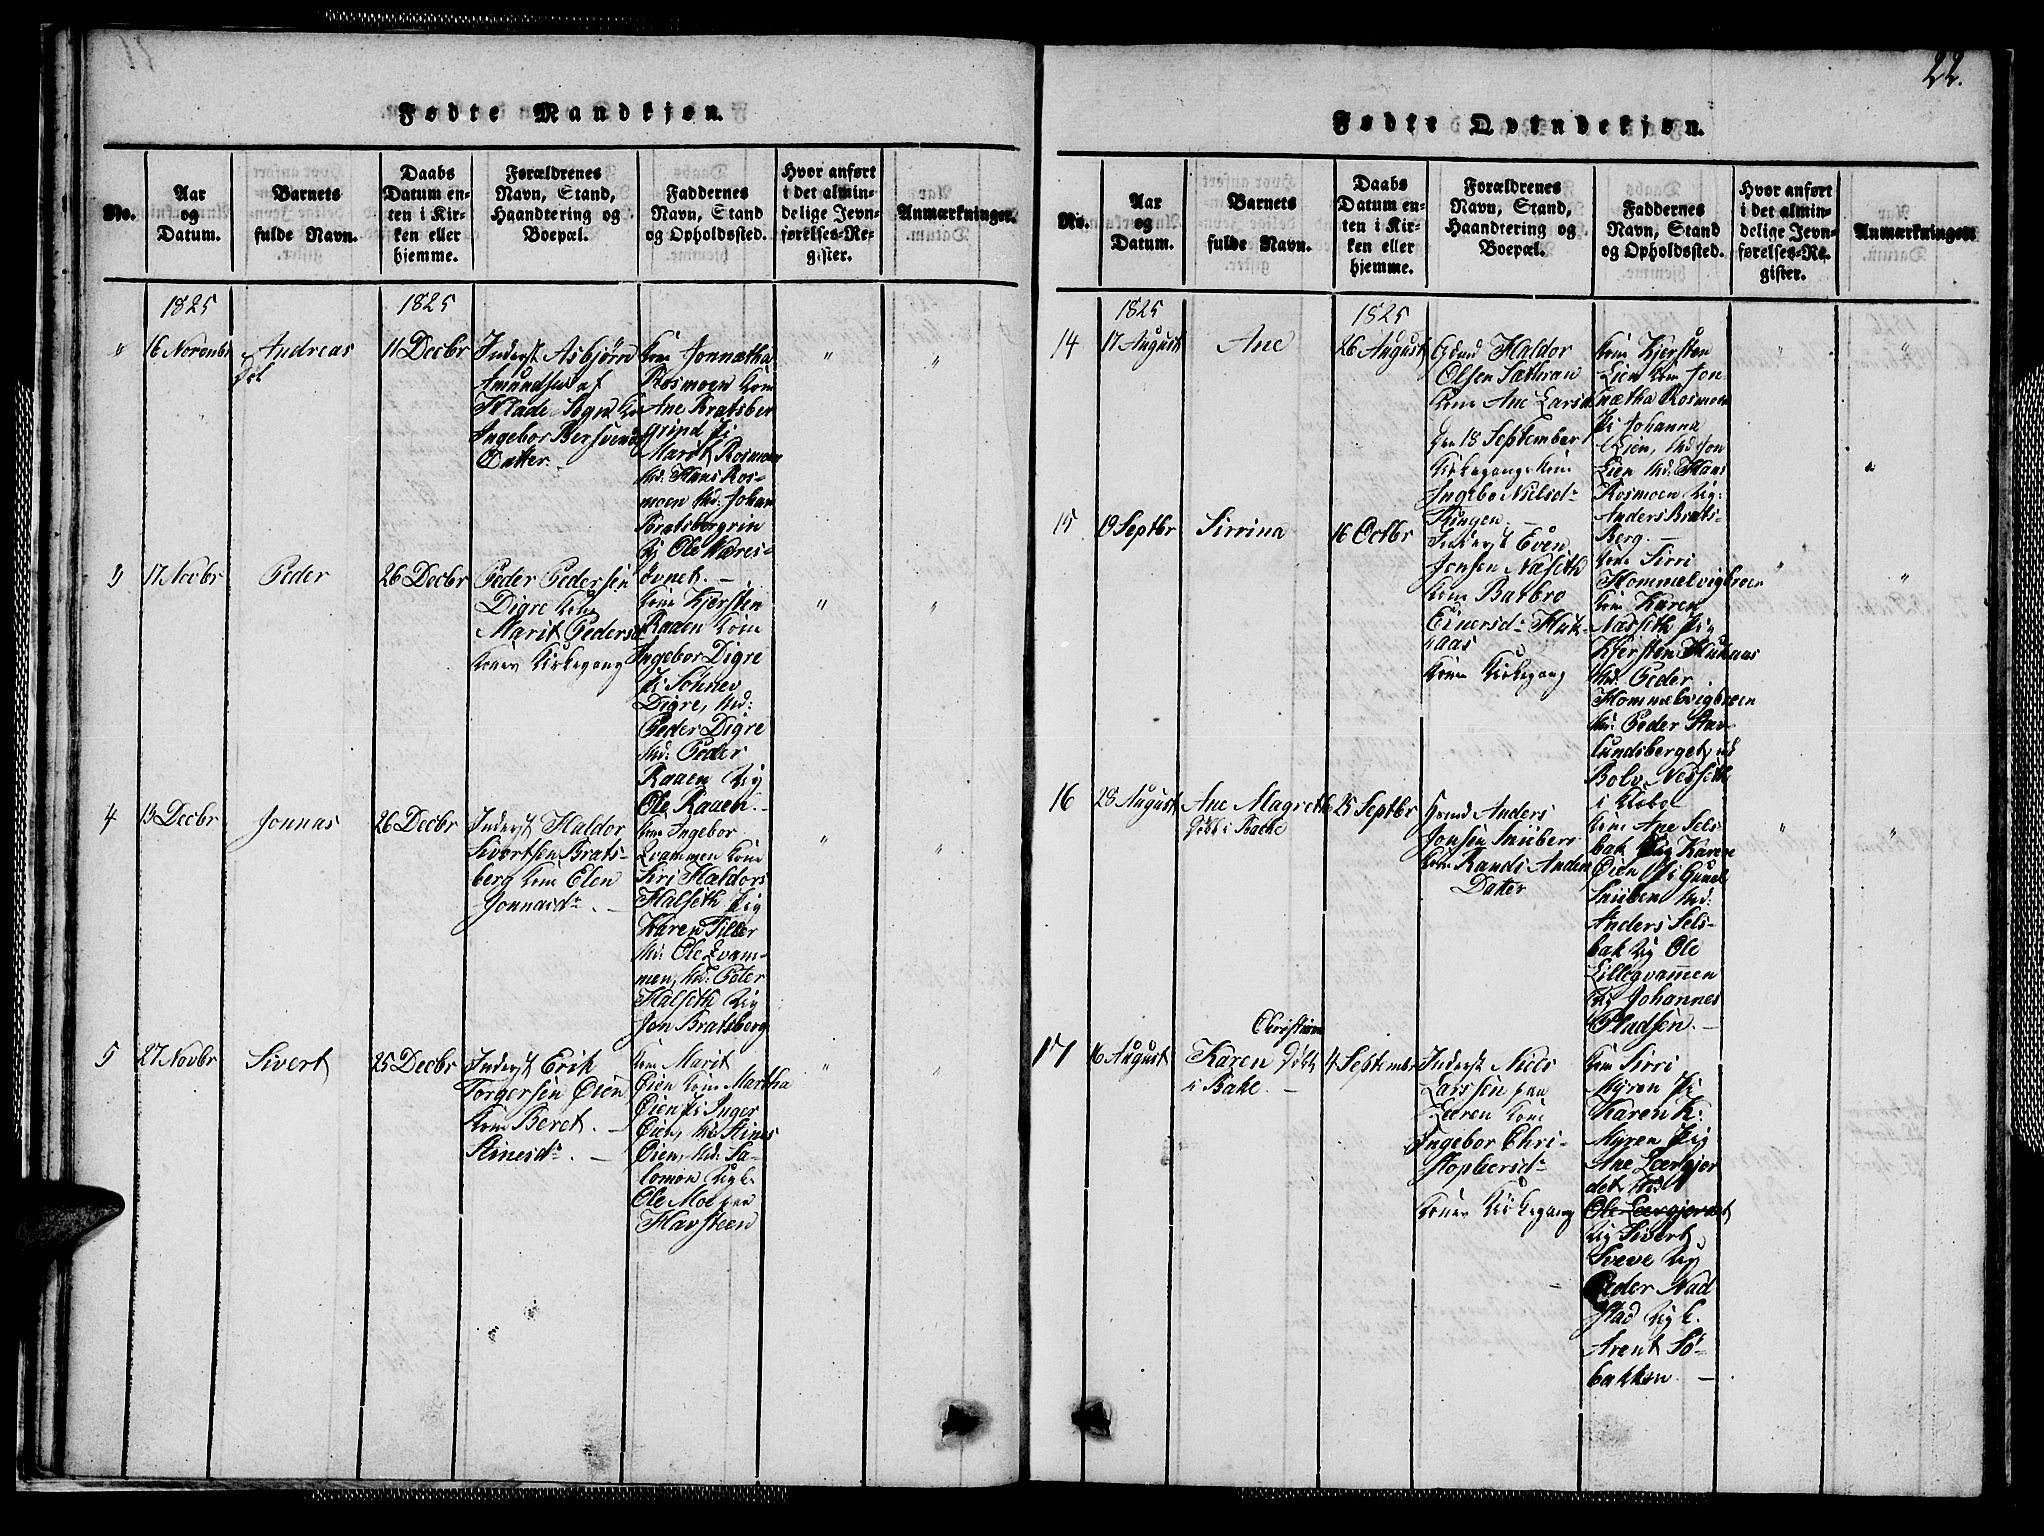 22.
Fødte Mandkjøn.
No.
Aar
og
Datum.
Barnets
fulde Navn.
Daabs
Datum en-
ten i Kir-
ken eller
hjemme.
Forældrenes
Navn, Stand,
Haandtering og
Boepæl.
Faddernes
Navn, Stand
og Opholdssted.
Hvor anført
i det almin-
delige Jevn-
førelses-Re-
gister.
Anmærkninger.
1825
1825
"
16 Novembr
Andreas
11 Decbr
Inderst Asbjørn
Amundsen af
Klade Sogn
Ingebor Bersvends
Datter
Kone Jonnætha
Rosmoen Kone
Ane Bratsber
grind Pi
Marit Rosmoen
Md: Hans Ros-
moen Md: Johan
Bratsbergrin
Ole Næres-
øvnet.
"
"
3
17 Novbr
Peder
26 Decbr
Peder Pedersen
Digre Kone
Marit Pedersd
Koners Kirkegang
Kone Kjersten
Raaen Kone
Ingebor Digre
Digre, Md:
Peder Digre
Md: Peder
Raaen
Ole Raaen.
"
"
4
13 Decbr
Jonnas
26 Decbr
Inderst Haldor
Sivertsen Brats-
berg Kone Elen
Jonnasdr.
Kone Ingebor
Qvammen Kone
Siri Haldors
Halseth Pig
Karen Tiller
Md: Ole Qvam-
men, Md: Peter
Halseth
Jon Bratsberg
"
"
5
27 Novbr
Sivert
25 Decbr
Inderst Erik
Torgersen Øien
Kone Beret
Stinesdr.
Kone Marit
Øien Kone Martha
Øien Pi Inger
Øien, Md: Stines
Øien, Md: Sa-
lomon
Ole Moe paa
Havsteen
"
"
Fødte Qvindekjøn.
No.
Aar
og
Datum.
Barnets
fulde Navn.
Daabs
Datum en-
ten i Kir-
ken eller
hjemme.
Forældrenes
Navn, Stand,
Haandtering og
Boepæl.
Faddernes
Navn, Stand
og Opholdssted.
Hvor anført
i det almin-
delige Jevn-
førelses-Re-
gister.
Anmærkninger.
1825
1825
14
17 August
Ane
26 August
Haldor
Olsen Sæthran
Kone Ane Larsd
Den 18 September
Kirkegangskone
Ingebo Nielsdr
Ringen.
Kone Kjersten
Lien Kone Jon-
nætha Rosmoen
Pi Johanna
Lien, Md: Jon
Lien Md: Hans
Rosmoen
Anders Brats-
Berg.
"
"
15
19 Septbr
Sirrina
16 Octbr
Inderst Even
Jonsen Næseth
Kone Barbro
Einersdr Huk-
aas
Kone Kirkegang
Kone Sirri
Hommelvigbroen
Kone Karen
Næsseth Pig
Kjersten Hukaas
Md: Peder
Hommelvigbroen
Md: Peder Stav-
lundsberget,
Bolv Nesseth
i Klæbo
"
"
16
28 August
Ane Magreth
Døbt i Bakke
25 Septbr
Anders
Jonsen Sniibers
Kone Randi Anders
Datter
Kone Ane Sels-
bak Pig Karen
Øien Pi Gunel
Sniiben Md:
Anders Sels-
bak Ole
Lillegvammen
Johannes
Pladsen.
"
"
17
16 August
Christianna
Karen Døbt
i Bake
4 September
Inderst Niels
Larssen paa
Leeren Kone
Ingebor Chri-
stophersdr
Koners Kirkegang
Kone Sirri
Myren Pi
Karen K:
Myren Pig
Ane Leergjor
det Md
Ole Leergjordet
Sivert
Sveve
Peder Nad
stad
Arent Sø-
bakken.